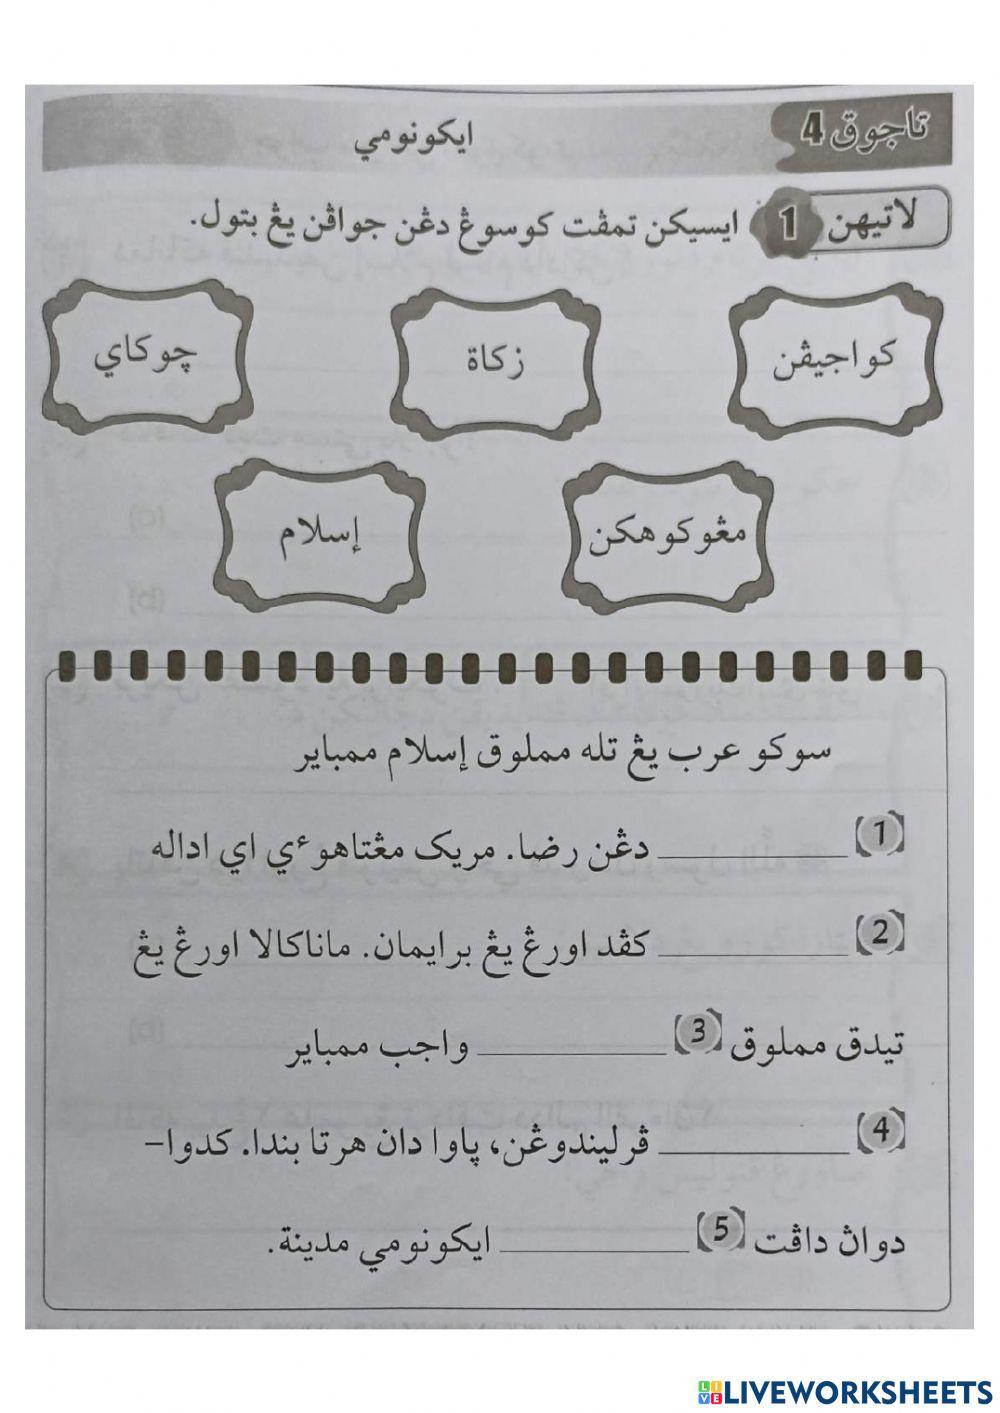 تاجوق 4
ايكونومي
لاتيهن 1 ايسيكن تمڤت كوسوڠ دڠن جواڤن يڠ بتول.
كواجيڤن
زكاة
چوكاي
مڠوكوهكن
إسلام
سوكو عرب يڠ تله مملوق إسلام ممباير
(1) __________ دڠن رضا. مريک مڠتاهوءي اي اداله
(2) __________ كڤد اورڠ يڠ برايمان. ماناكالا اورڠ يڠ
تيدق مملوق (3) __________ واجب ممباير
(4) __________ ڤرليندوڠن، ڽاوا دان هرتا بندا. كدوا–
دواڽ داڤت (5) __________ ايكونومي مدينة.
LIVEWORKSHEETS